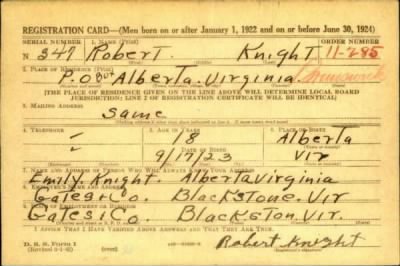 REGISTRATION CARD—(Men born on or after January 1, 1922 and on or before June 30, 1924)
SERIAL NUMBER 1. NAME (Print) ORDER NUMBER
N 347 Robert. Knight 11-285
2. PLACE OF RESIDENCE (Print)
P.O Box Alberta. Virginia. Brunswick
[THE PLACE OF RESIDENCE GIVEN ON THE LINE ABOVE WILL DETERMINE LOCAL BOARD
JURISDICTION; LINE 2 OF REGISTRATION CERTIFICATE WILL BE IDENTICAL]
3. MAILING ADDRESS
Same
4. TELEPHONE 5. AGE IN YEARS 6. PLACE OF BIRTH
18 Alberta
DATE OF BIRTH
9/17/23 Vir
7. NAME AND ADDRESS OF PERSON WHO WILL ALWAYS KNOW YOUR ADDRESS
Emily Knight. Alberta Virginia
8. EMPLOYER'S NAME AND ADDRESS
Gales & Co. Blackstone. Vir
9. PLACE OF EMPLOYMENT OR BUSINESS
Gales & Co. Blackston. Vir.
I AFFIRM THAT I HAVE VERIFIED ABOVE ANSWERS AND THAT THEY ARE TRUE.
D. S. S. Form 1
Robert Knight